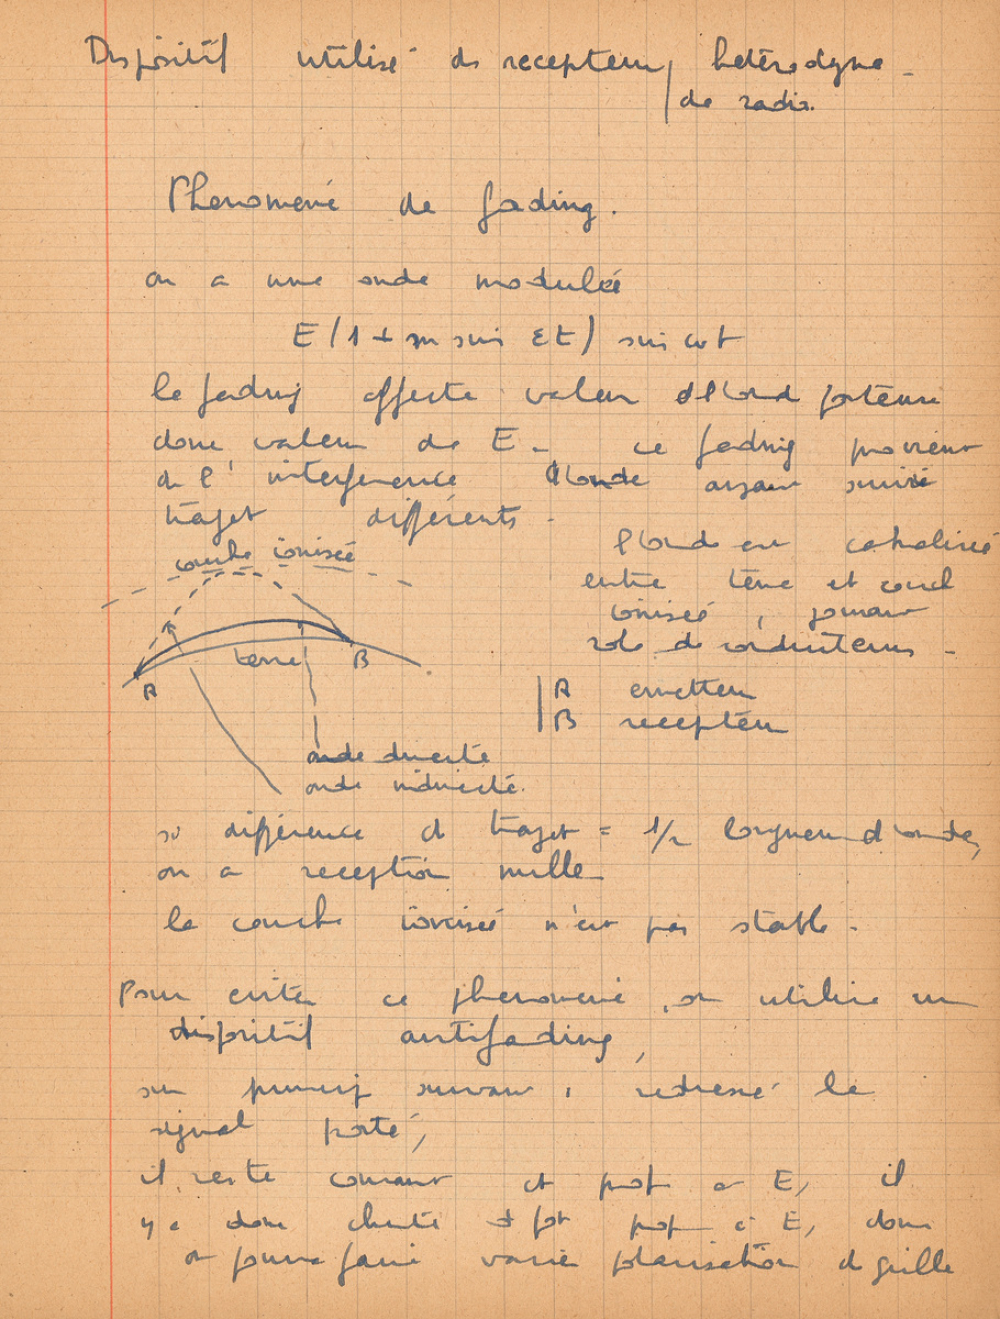 Dispositif utilisé ds recepteur hetérodyne -
de radio.
Phenomené de fading.
on a une onde modulée
E (1 + m sin Ωt) sin ωt
le fading affecte valeur de l'onde porteuse
donc valeur de E - ce fading provient
de l'interference d'onde ayant suivi
trajet différents -
couche ionisée
l'onde est canalisée
entre terre et couche
ionisée, jouant
role de conducteurs -
terre
A
B
A emetteur
B recepteur
onde directe
onde indirecte.
si différence de trajet = 1/2 longueur d'onde,
on a reception nulle
la couche ionisée n'est pas stable -
Pour eviter ce phenomené, on utilise un
dispositif antifading,
sur principe suivant : redressé le
signal porté,
il reste courant ct prop a E, il
y a donc chute d pot prop a E, donc
on pourra faire varie polarisation d grille